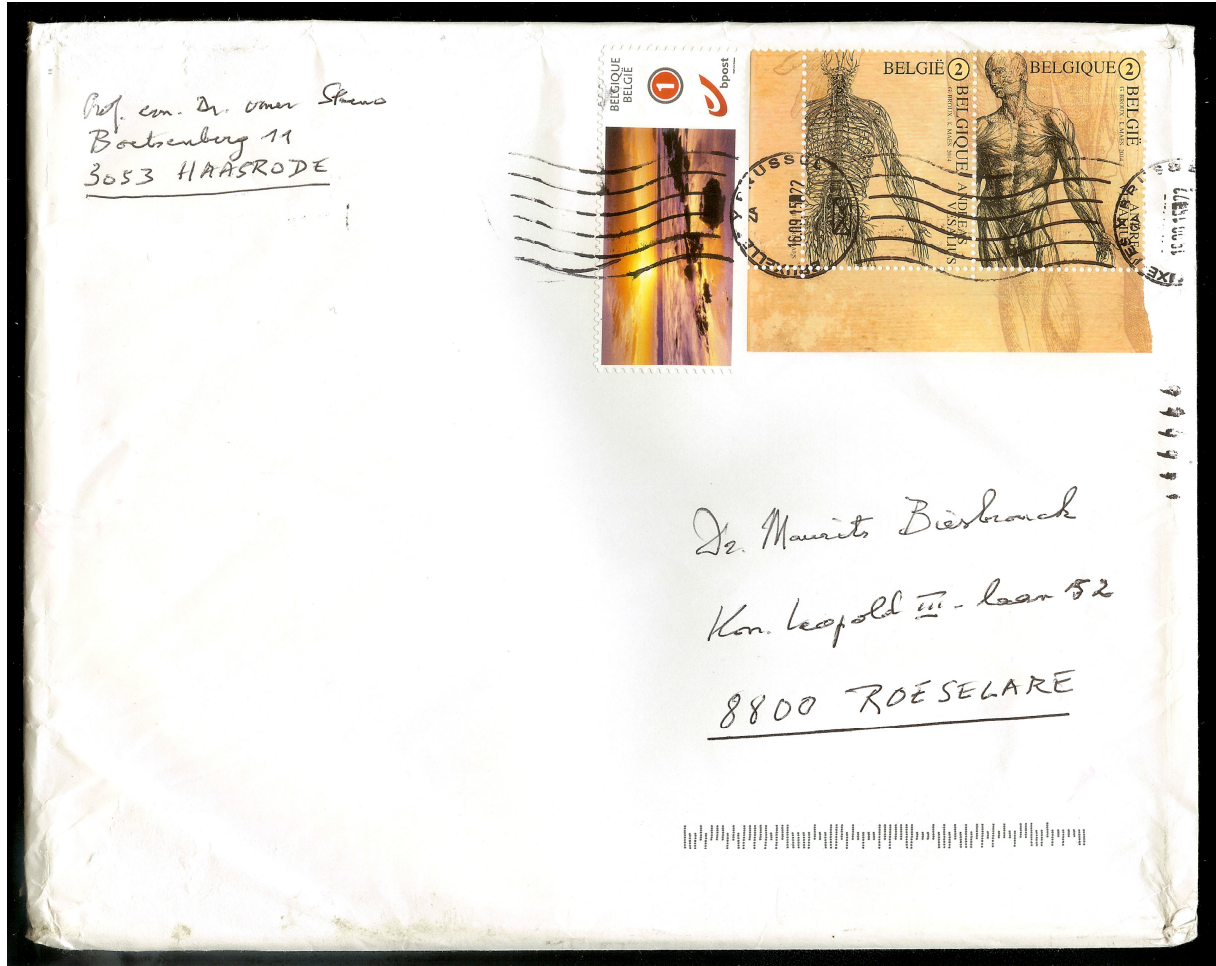 Prof. em. Dr. Omer Steeno
Boetsenberg 11
3053 HAASRODE
BELGIQUE
BELGIË
1
bpost
BELGIË 2
BELGIQUE ANDREAS
VESALIUS
G. BROUX, I. MAES 2014
BELGIQUE 2
BELGIË
G. BROUX, I. MAES 2014
16.09.15 22
Dr. Maurits Biesbrouck
Kon. Leopold III-laan 52
8800 ROESELARE